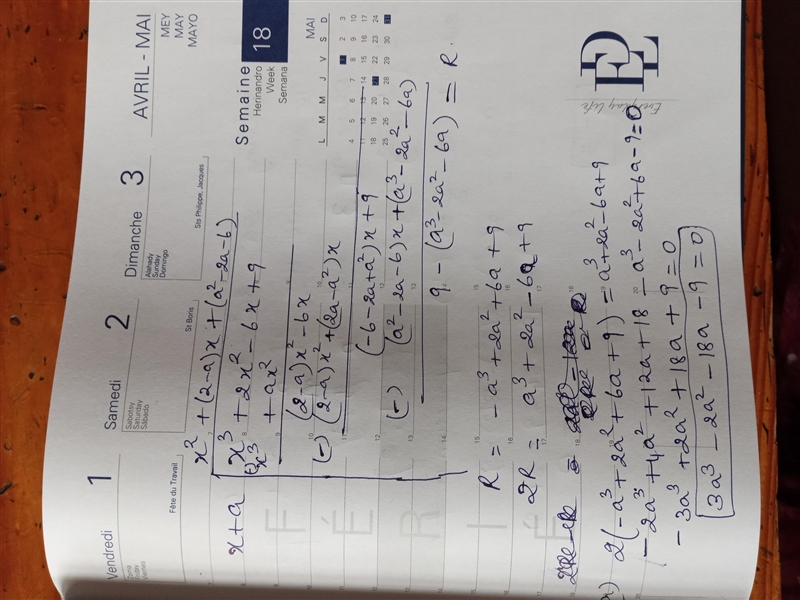 AVRIL - MAI
MEY
MAY
MAYO
Semaine
Herinandro
Week
Semana
18
MAI
L M M J V S D
1 2 3
4 5 6 7 8 9 10
11 12 13 14 15 16 17
18 19 20 21 22 23 24
25 26 27 28 29 30 31
EDL
Everyday Life
Vendredi
1
Fête du Travail
Samedi
Sabotsy
Saturday
Sábado
2
St Boris
Dimanche
Alahady
Sunday
Domingo
3
Sts Philippe, Jacques
x² + (2-a)x + (a²-2a-6)
x+a
x³ + 2x² - 6x + 9
(-) x³ + ax²
(2-a)x² - 6x
(-) (2-a)x² + (2a-a²)x
(-6-2a+a²)x + 9
(-) (a²-2a-6)x + (a³-2a²-6a)
9 - (a³-2a²-6a) = R.
R = -a³ + 2a² + 6a + 9
2R = a³ + 2a² - 6a + 9
2(-a³ + 2a² + 6a + 9) = a³ + 2a² - 6a + 9
-2a³ + 4a² + 12a + 18 - a³ - 2a² + 6a - 9 = 0
-3a³ + 2a² + 18a + 9 = 0
3a³ - 2a² - 18a - 9 = 0
F
É
R
I
É